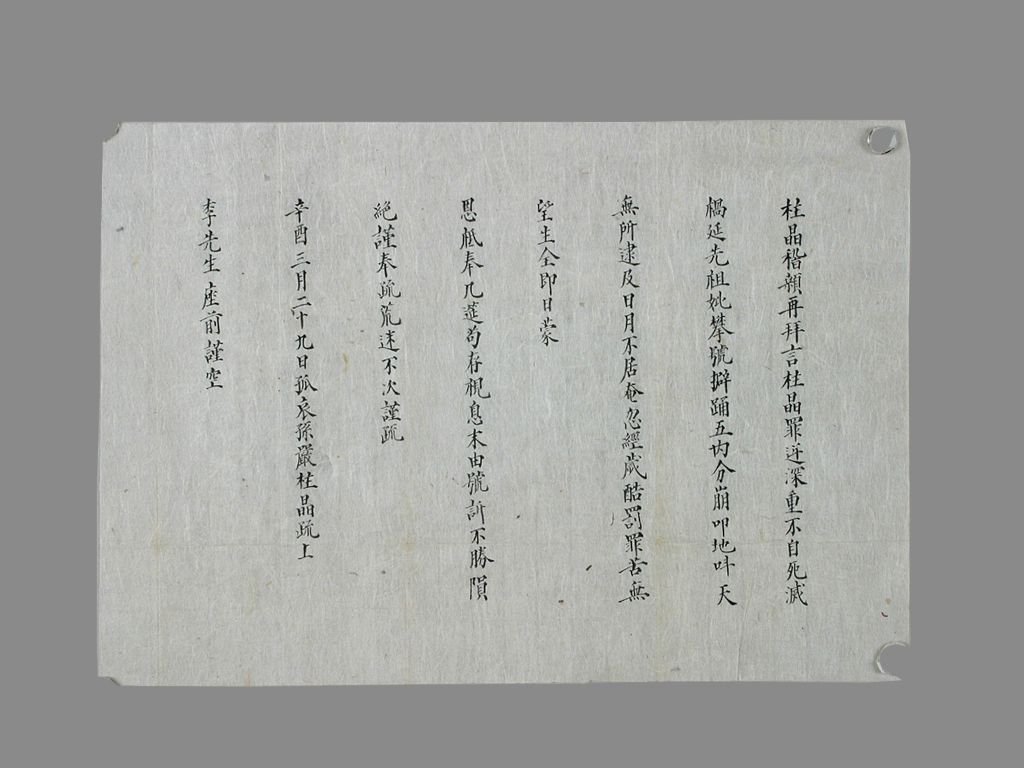 柱晶稽顙再拜言柱晶罪逆深重不自死滅
禍延先祖妣攀號擗踊五內分崩叩地叫天
無所逮及日月不居奄忽經歲酷罰罪苦無
望生全即日蒙
恩祗奉几筵苟存視息末由號訴不勝隕
絶謹奉疏荒迷不次謹疏
辛酉三月二十九日孤哀孫嚴柱晶疏上
李先生座前謹空